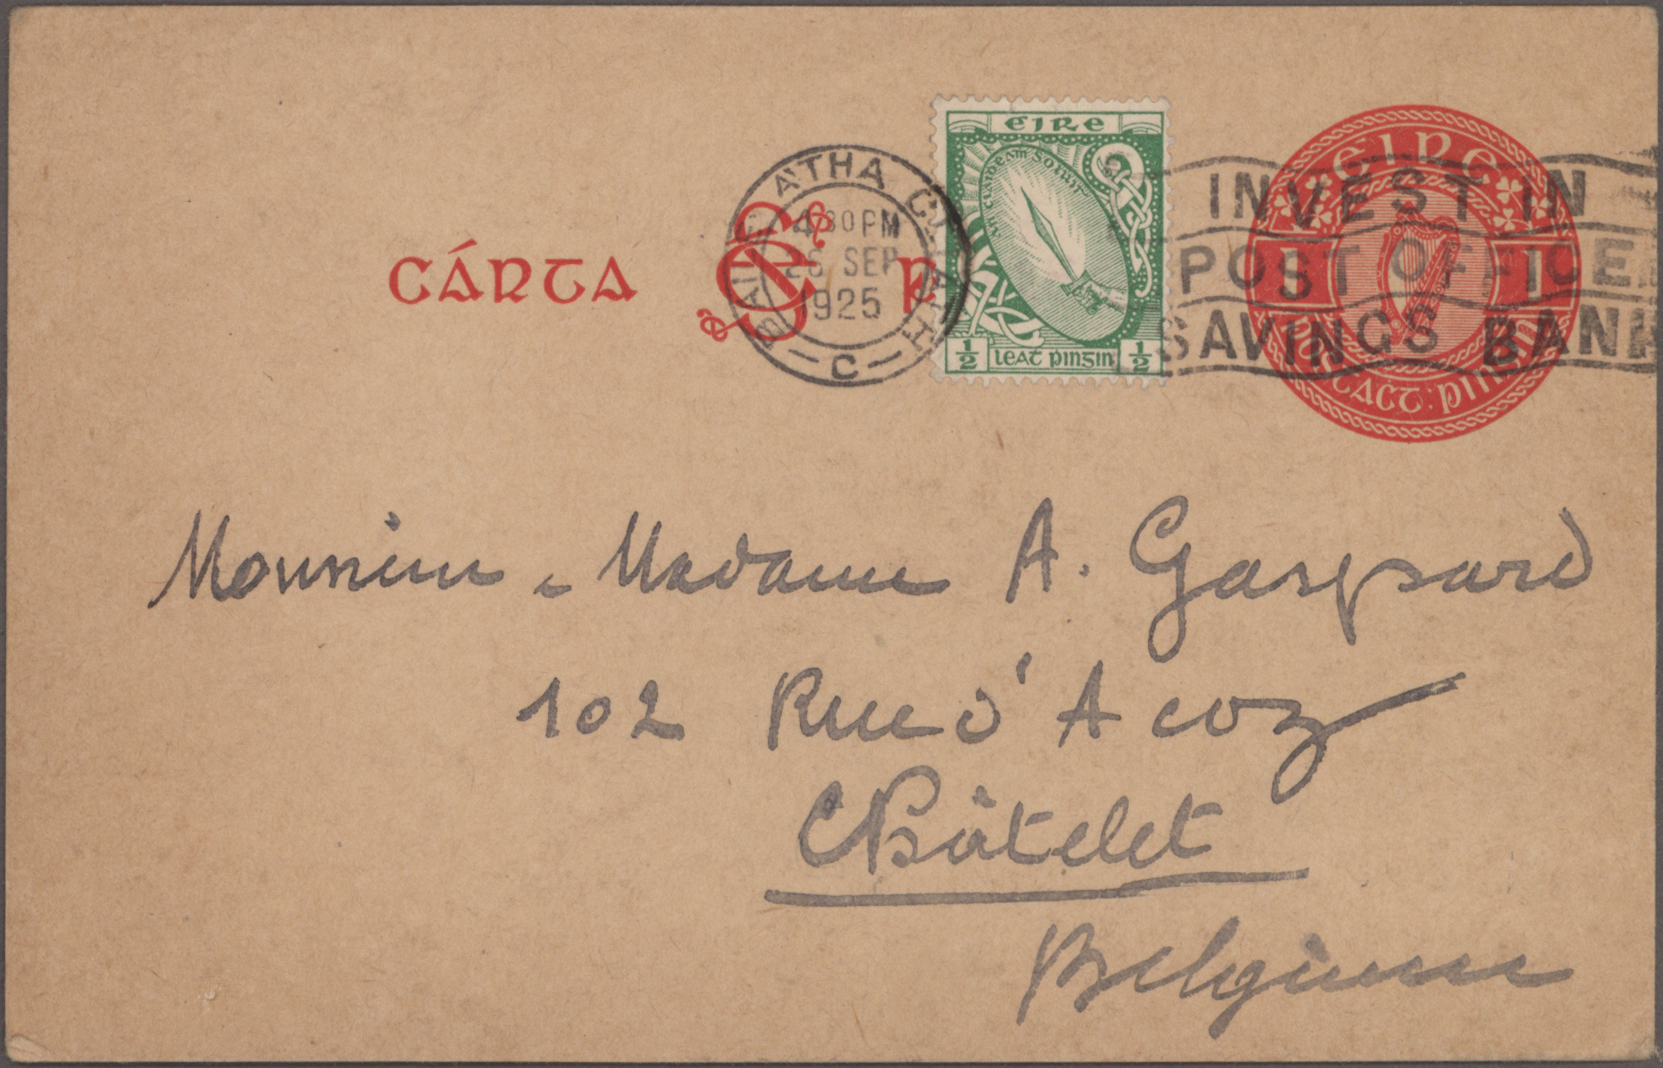 CÁRTA P
BAILE ÁTHA CLIATH
4 30 PM
SEP
1925
C
ÉIRE
AN CLAIDEAM SOLUIS
½ LEAT PINGIN ½
INVEST IN
POST OFFICE
SAVINGS BANK
EIRE
1 1
PINGIN
Monsieur - Madame A. Gaspard
102 Rue d'Acoz
Châtelet
Belgique